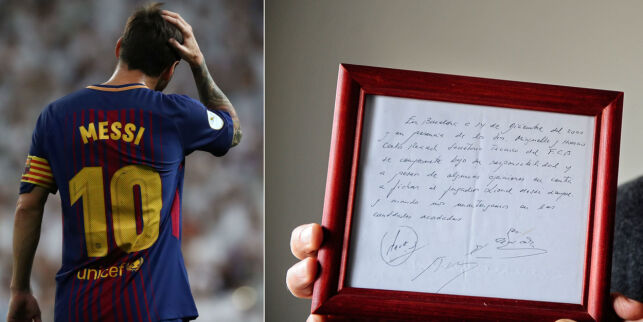 MESSI
10
unicef
En Barcelona a 14 de diciembre del 2000
y en presencia de los Sres Minguella y Horacio
Carles Rexach Secretario Técnico del F.C.B
se compromete bajo su responsabilidad y
a pesar de algunas opiniones en contra
a fichar al jugador Lionel Messi siempre
y cuando nos mantengamos en las
cantidades acordadas